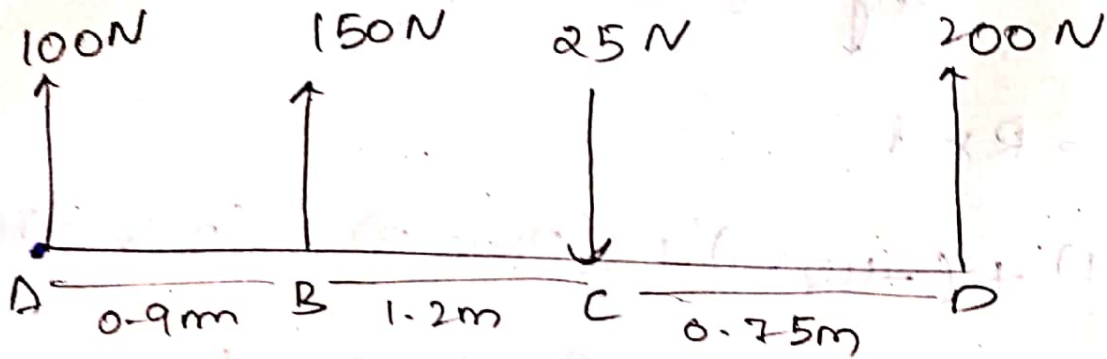 100N 150N 25N 200N
A 0.9m B 1.2m C 0.75m D